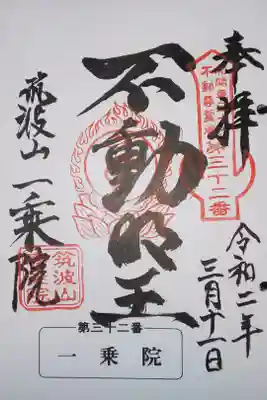 奉拝
不動尊霊場第三十二番
令和二年
三月十一日
不動明王
筑波山一乗院
筑波山
第三十二番
一乗院